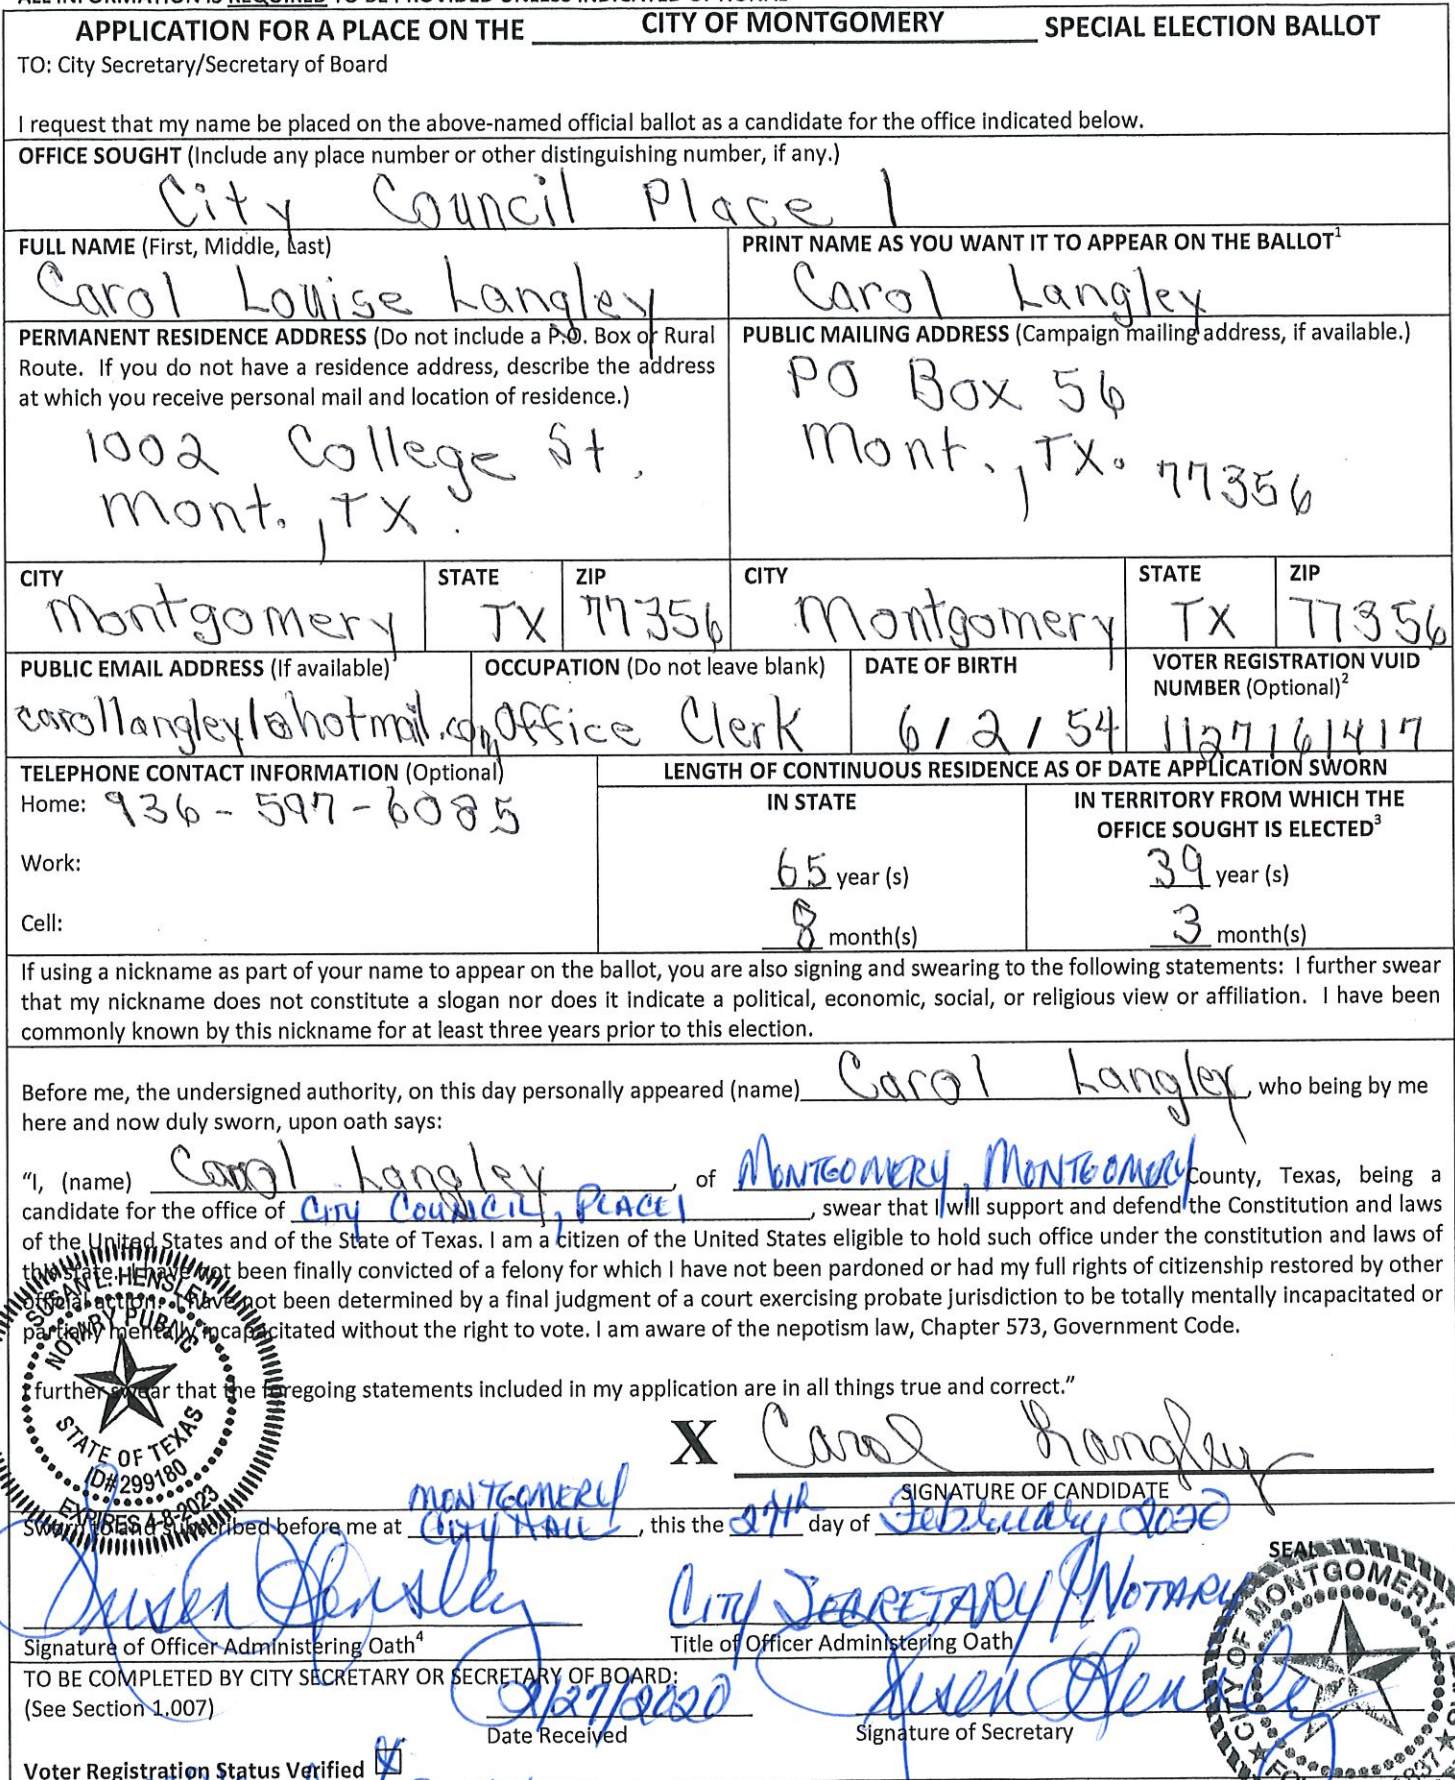 APPLICATION FOR A PLACE ON THE CITY OF MONTGOMERY SPECIAL ELECTION BALLOT
TO: City Secretary/Secretary of Board
I request that my name be placed on the above-named official ballot as a candidate for the office indicated below.
OFFICE SOUGHT (Include any place number or other distinguishing number, if any.)
City Council Place 1
FULL NAME (First, Middle, Last)
Carol Louise Langley
PRINT NAME AS YOU WANT IT TO APPEAR ON THE BALLOT¹
Carol Langley
PERMANENT RESIDENCE ADDRESS (Do not include a P.O. Box or Rural
Route. If you do not have a residence address, describe the address
at which you receive personal mail and location of residence.)
1002 College St.
Mont., TX.
PUBLIC MAILING ADDRESS (Campaign mailing address, if available.)
PO Box 56
Mont., TX. 77356
CITY
Montgomery
STATE
TX
ZIP
77356
CITY
Montgomery
STATE
TX
ZIP
77356
PUBLIC EMAIL ADDRESS (If available)
carollangley1@hotmail.com
OCCUPATION (Do not leave blank)
Office Clerk
DATE OF BIRTH
6/2/54
VOTER REGISTRATION VUID
NUMBER (Optional)²
1127161417
TELEPHONE CONTACT INFORMATION (Optional)
Home: 936-597-6085
Work:
Cell:
LENGTH OF CONTINUOUS RESIDENCE AS OF DATE APPLICATION SWORN
IN STATE
65 year (s)
8 month(s)
IN TERRITORY FROM WHICH THE
OFFICE SOUGHT IS ELECTED³
39 year (s)
3 month(s)
If using a nickname as part of your name to appear on the ballot, you are also signing and swearing to the following statements: I further swear
that my nickname does not constitute a slogan nor does it indicate a political, economic, social, or religious view or affiliation. I have been
commonly known by this nickname for at least three years prior to this election.
Before me, the undersigned authority, on this day personally appeared (name) Carol Langley, who being by me
here and now duly sworn, upon oath says:
"I, (name) Carol Langley, of MONTGOMERY, MONTGOMERY County, Texas, being a
candidate for the office of CITY COUNCIL, PLACE 1, swear that I will support and defend the Constitution and laws
of the United States and of the State of Texas. I am a citizen of the United States eligible to hold such office under the constitution and laws of
this state. I have not been finally convicted of a felony for which I have not been pardoned or had my full rights of citizenship restored by other
official action. I have not been determined by a final judgment of a court exercising probate jurisdiction to be totally mentally incapacitated or
partially mentally incapacitated without the right to vote. I am aware of the nepotism law, Chapter 573, Government Code.
I further swear that the foregoing statements included in my application are in all things true and correct."
SUSAN L. HENSLEY
NOTARY PUBLIC
STATE OF TEXAS
ID# 299180
EXPIRES 4-8-2023
X Carol Langley
SIGNATURE OF CANDIDATE
Sworn to and subscribed before me at MONTGOMERY CITY HALL, this the 27th day of February 2020
Susan Hensley
Signature of Officer Administering Oath⁴
CITY SECRETARY/NOTARY
Title of Officer Administering Oath
SEAL
CITY OF MONTGOMERY,
TO BE COMPLETED BY CITY SECRETARY OR SECRETARY OF BOARD:
(See Section 1.007)
2/27/2020
Date Received
Susan Hensley
Signature of Secretary
Voter Registration Status Verified